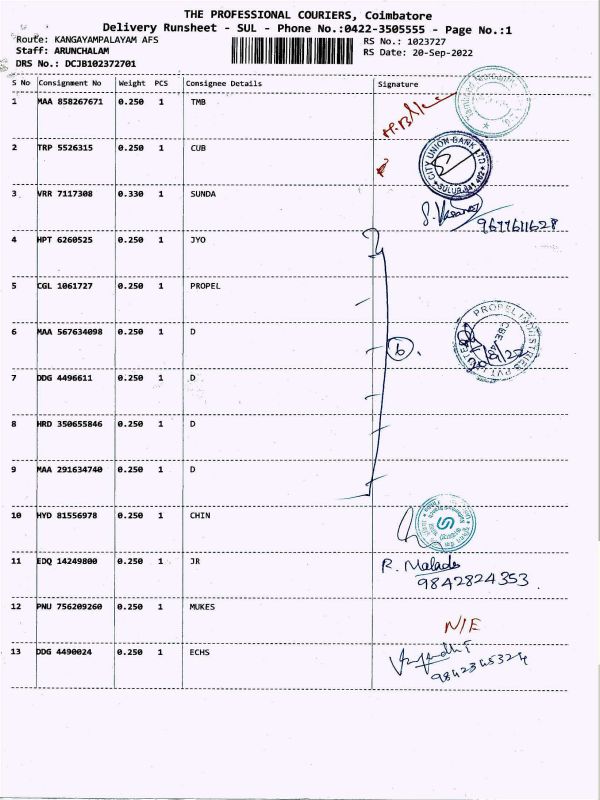 THE PROFESSIONAL COURIERS, Coimbatore
Delivery Runsheet - SUL - Phone No.:0422-3505555 - Page No.:1
Route: KANGAYAMPALAYAM AFS RS No.: 1023727
Staff: ARUNCHALAM RS Date: 20-Sep-2022
DRS No.: DCJB102372701
S No Consignment No Weight PCS Consignee Details Signature
1 MAA 858267671 0.250 1 TMB
2 TRP 5526315 0.250 1 CUB
CITY UNION BANK LTD
SULUR
3 VRR 7117308 0.330 1 SUNDA
9677611628
4 HPT 6260525 0.250 1 JYO
5 CGL 1061727 0.250 1 PROPEL
PROPEL INDUSTRIES PVT LIMITED
6 MAA 567634098 0.250 1 D
7 DDG 4496611 0.250 1 D
8 HRD 350655846 0.250 1 D
9 MAA 291634740 0.250 1 D
10 HYD 81556978 0.250 1 CHIN
11 EDQ 14249800 0.250 1 JR
R. Malade
9842824353
12 PNU 756209260 0.250 1 MUKES
N/E
13 DDG 4490024 0.250 1 ECHS
9842345324